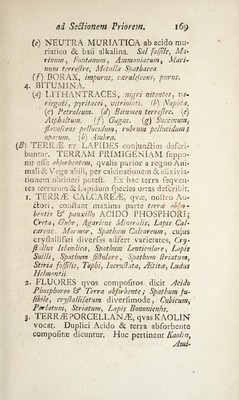 ad Sectionem Priorem. 169
(e) NEUTRA MURIATICA ab acido mu-
riatico & basi alkalina. Sal fossile, Ma-
rinum, Fontanum, Ammoniatum, Mari-
num terrestre, Metalla Spathacea.
(f) BORAX, impurus, cærulescens, purus.
4. BITUMINA.
(a) LITHANTRACES, nigri nitentes, va-
riegati, pyritacei, vitriolati. (b) Napbta.
(c) Petroleum. (d) Bitumen terrestre. (e)
Asphaltum. (f) Gagas. (g) Succinum,
flavescens pellucidum, rubrum pellucidum;
opacum. (h) Ambra.
(B) TERRÆ ET LAPIDES conjunctim descri-
buntur. TERRAM PRIMIGENIAM suppo-
nit esse absorbentem, qvalis purior a regno Ani-
mali & Vegetabili, per calcinationem & elixivia-
tionem obtineri potest. Ex hac terra seqven-
tes terrarum & Lapidum species ortes describit.
1. TERRÆ CALCAREÆ, qvæ, nostro Au-
ctori, constant maxima parte terra absor-
bentis & pauxillo ACIDO PHOSPHORI;
Creta, Cobr, Agaricus Mineralis, Lapis Cal-
careus. Marmor, Spathum Calcareum, cujus
crystallisari diversis adsert varietates, Cry-
stallus Islandica, Spathum Lenticulare, Lapis
Suilli, Spathum fistulare, Spathum striatum,
Stiria fossilis, Tophi, Incrustata, Ætitæ, Ludus
Helmontii.
2. FLUORES qvos compositos dicit Acido
Phosphoreo & Terra absorbente; Spathum fu-
sibile, crystallisatum diversimode, Cubicum,
Perlatum, Striatum, Lapis Bononiensis.
3. TERRÆ PORCELLANÆ, qvas KAOLIN
vocat. Duplici Acido & terra absorbente
compositæ dicuntur. Huc pertinent Kaolin,
Ami-